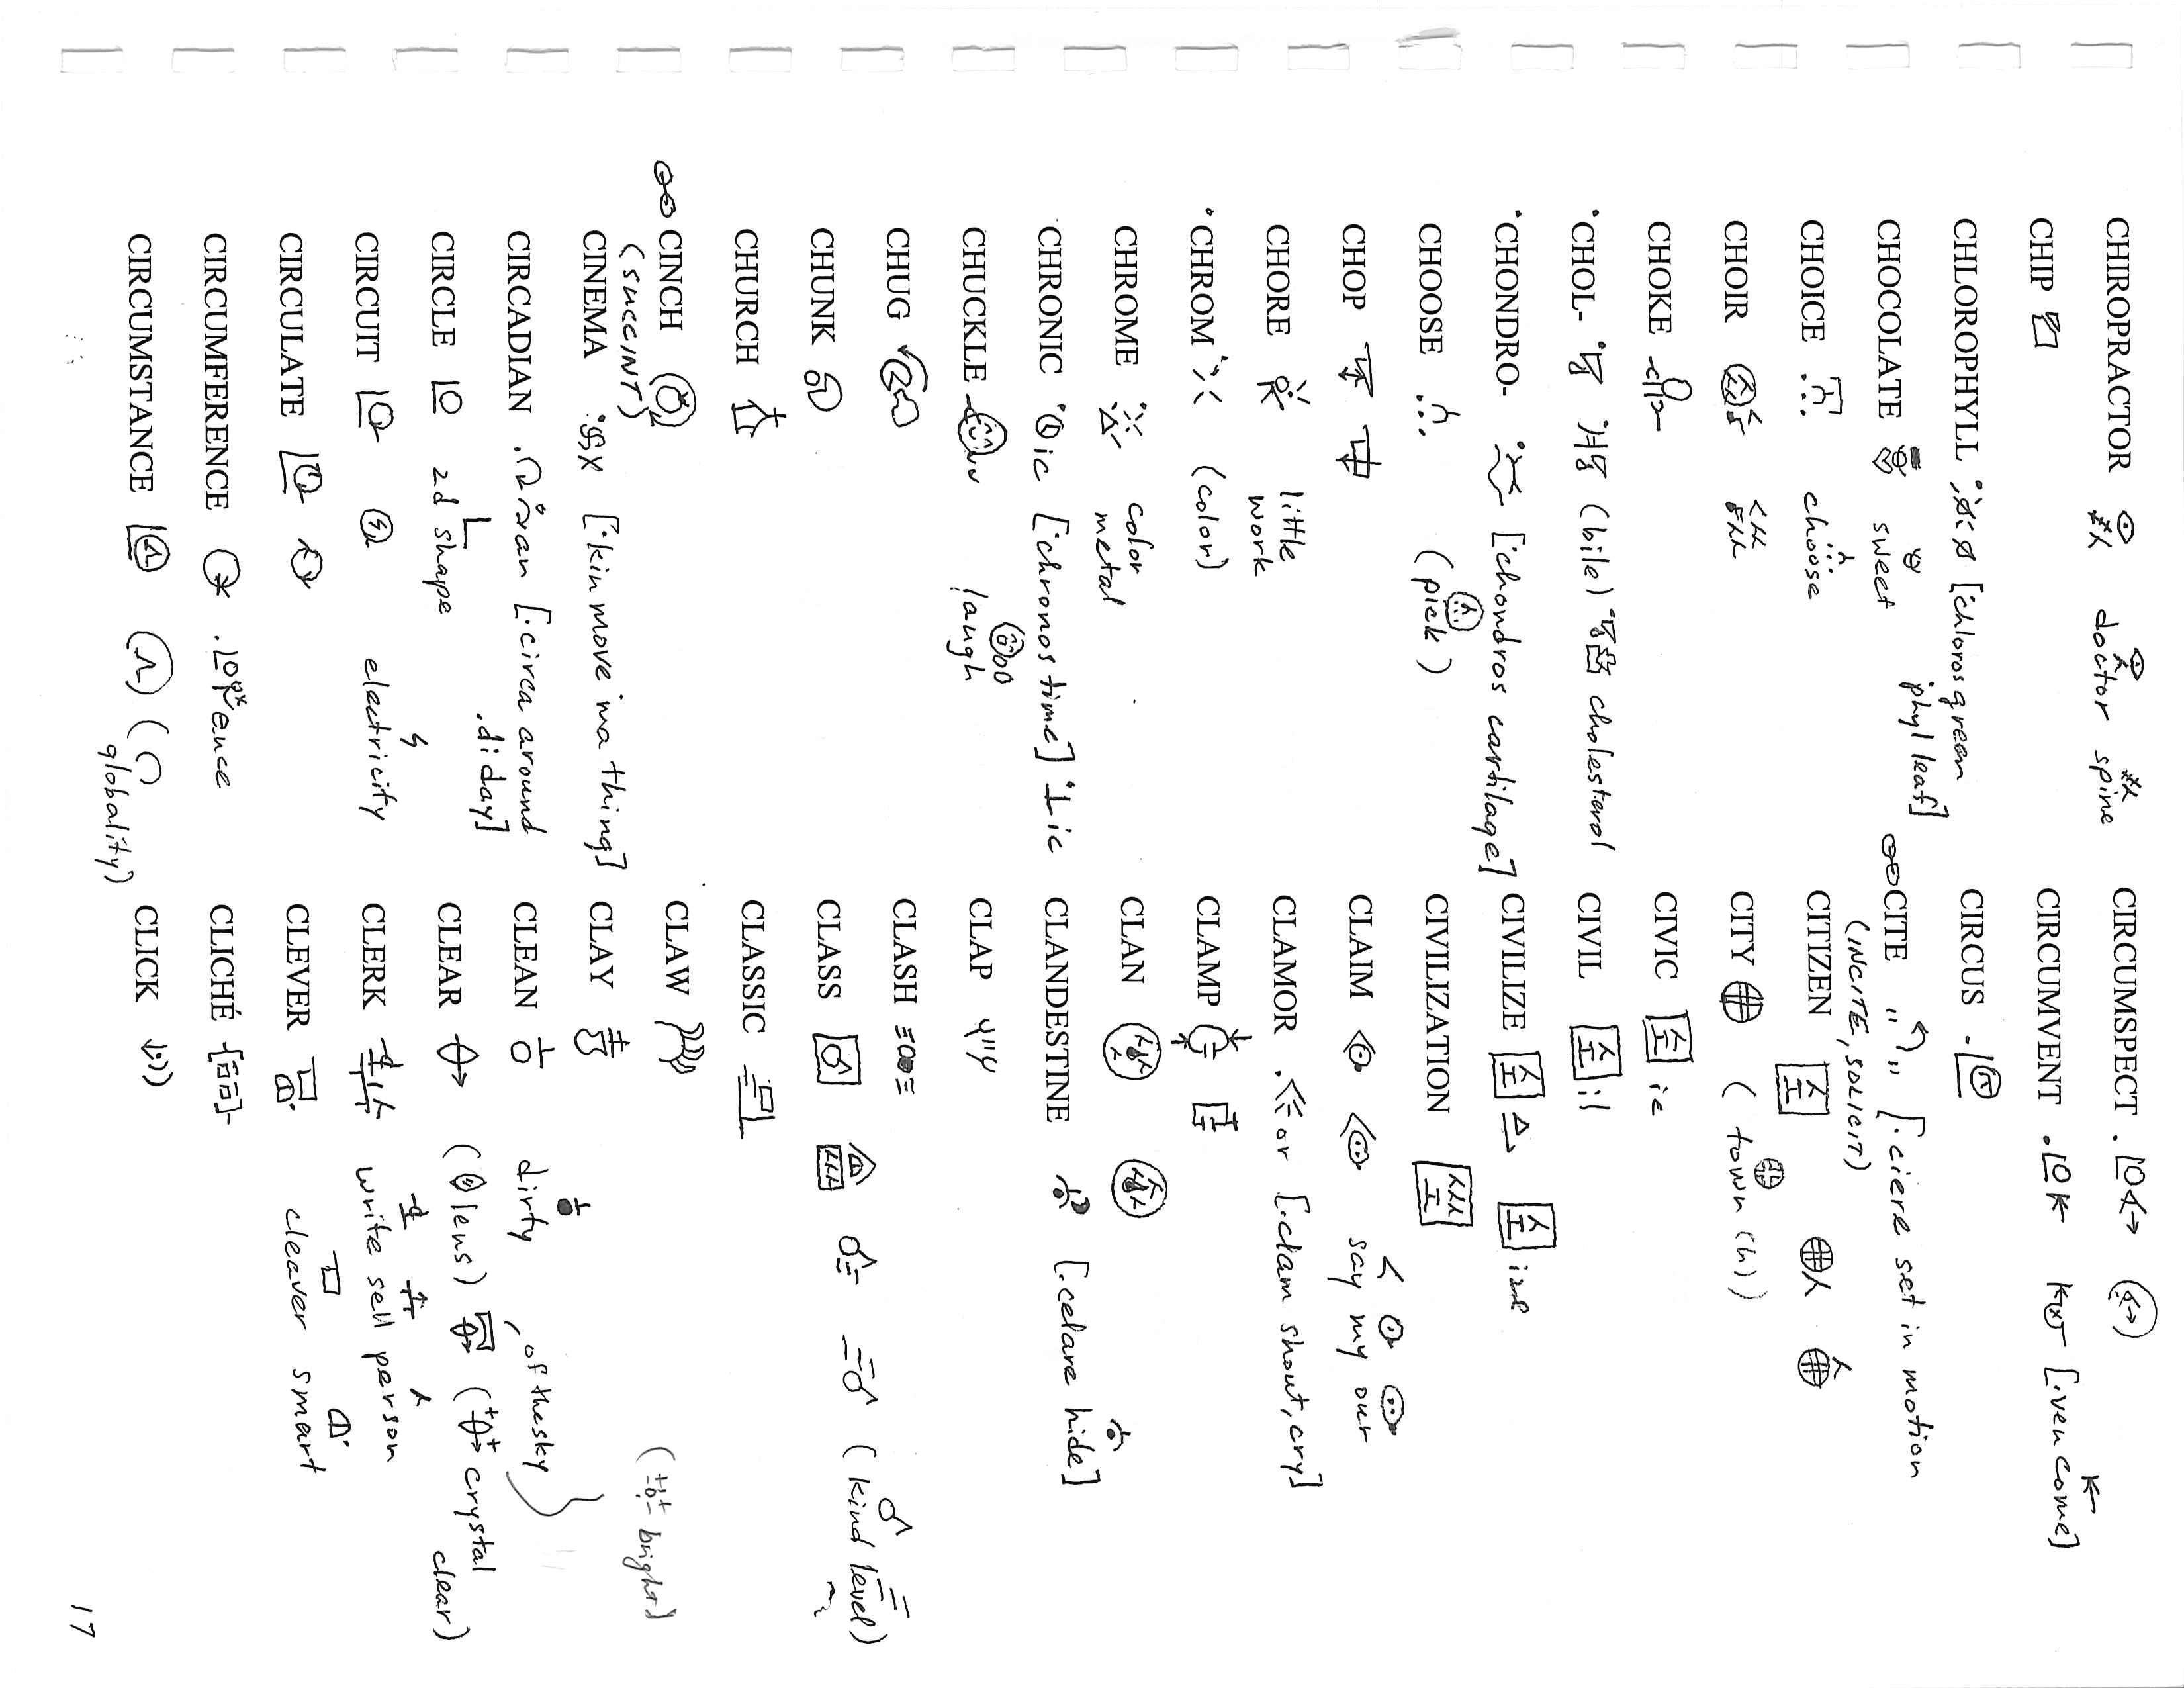 CHIROPRACTOR doctor spine
CHIP
CHLOROPHYLL [chloros green
phyl leaf]
CHOCOLATE sweet
CHOICE choose
CHOIR
CHOKE
CHOL- (bile) cholesterol
CHONDRO- [chondros cartilage]
CHOOSE (pick)
CHOP
CHORE little
work
CHROM (color)
CHROME color
metal
CHRONIC ic [chronos time] ic
CHUCKLE laugh
CHUG
CHUNK
CHURCH
CINCH
(succINT)
CINEMA [kin move ma thing]
CIRCADIAN an [circa around
di day]
CIRCLE 2d shape
CIRCUIT electricity
CIRCULATE
CIRCUMFERENCE ence
CIRCUMSTANCE (
globality)
CIRCUMSPECT
CIRCUMVENT [ven come]
CIRCUS
CITE [ciere set in motion
(INCITE, SOLICIT)
CITIZEN
CITY (town (h))
CIVIC ic
CIVIL il
CIVILIZE ize
CIVILIZATION
CLAIM say my our
CLAMOR or [clam shout, cry]
CLAMP
CLAN
CLANDESTINE [celare hide]
CLAP
CLASH
CLASS (kind level)
CLASSIC
CLAW (bright)
CLAY
CLEAN dirty of the sky
CLEAR (lens) (crystal
clear)
CLERK write sell person
CLEVER cleaver smart
CLICHÉ
CLICK
17